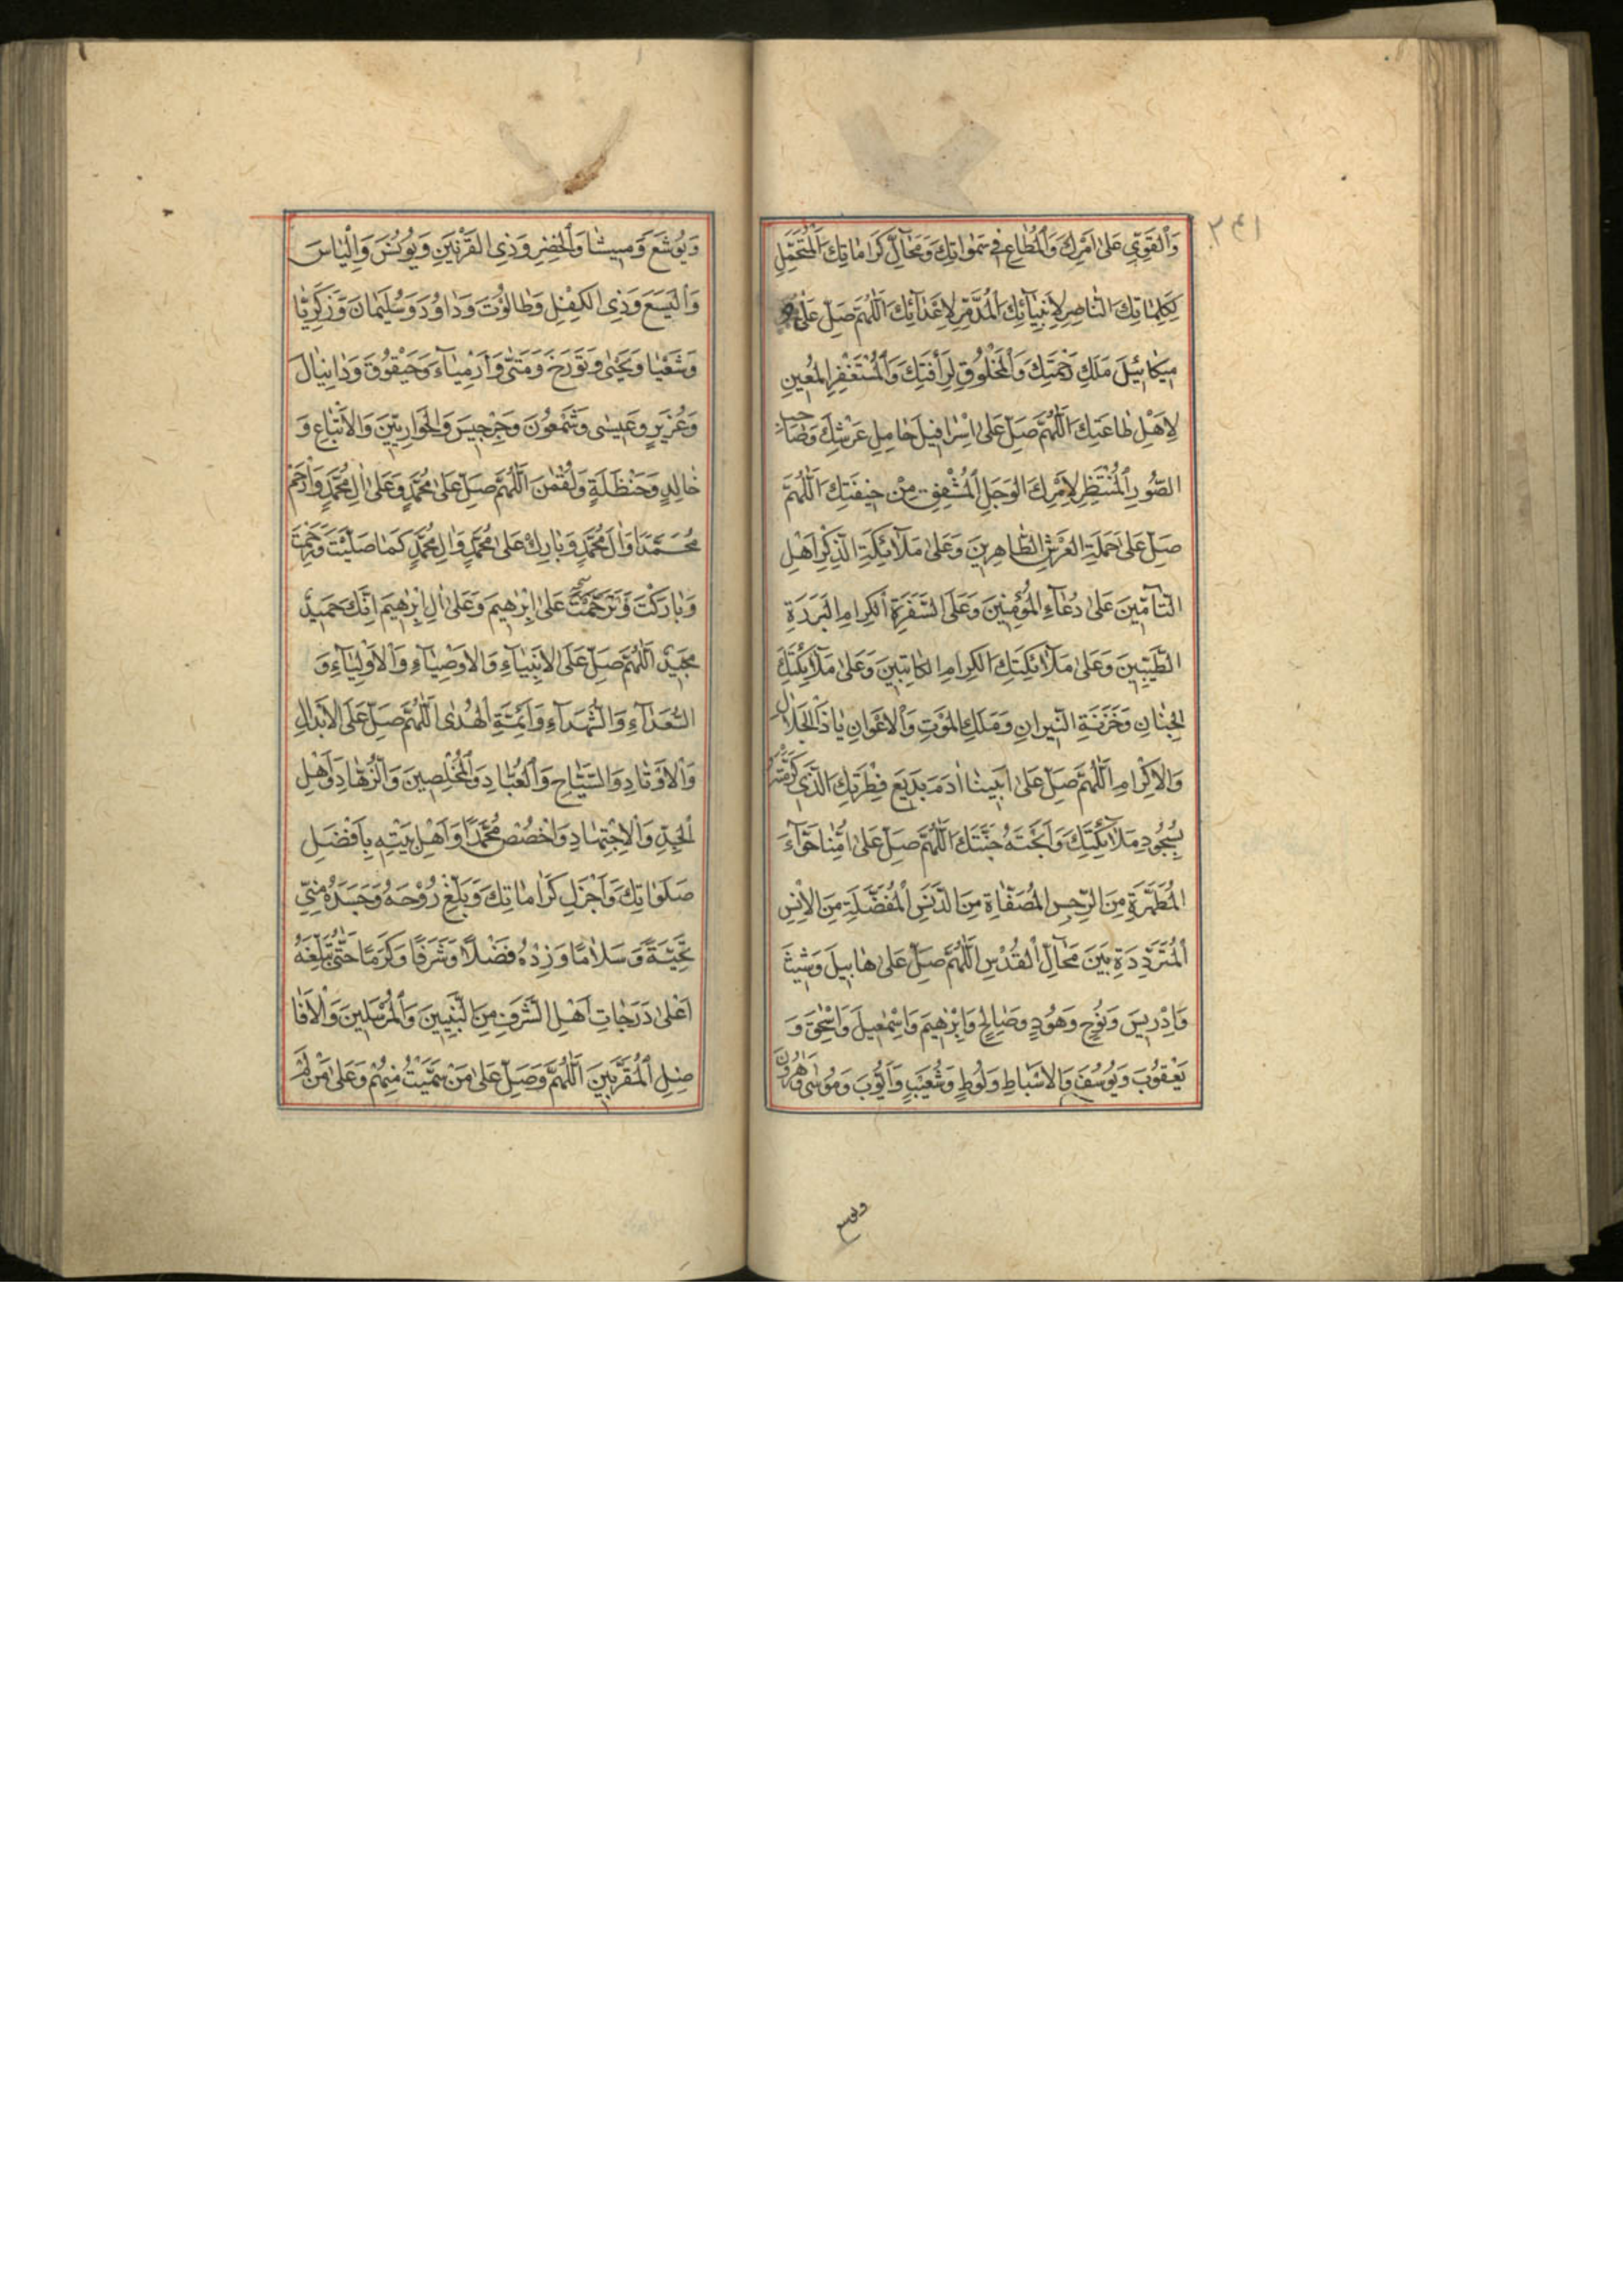 ٢٤١
وَالْقَوِيِّ عَلىٰ اَمْرِكَ وَالْمُطٰاعِ فى سَمٰوٰاتِكَ وَمَحٰآلِّ كَرٰامٰاتِكَ الْمُتَحَمِّلِ
لِكَلِمٰاتِكَ النّٰاصِرِ لِاَنْبِيٰآئِكَ الْمُدَمِّرِ لِاَعْدٰآئِكَ اَللّٰهُمَّ صَلِّ عَلىٰ
ميكٰائيلَ مَلَكِ رَحْمَتِكَ وَالْمَخْلُوقِ لِرَاْفَتِكَ وَالْمُسْتَغْفِرِ الْمُعينِ
لِاَهْلِ طٰاعَتِكَ اَللّٰهُمَّ صَلِّ عَلىٰ اِسْرٰافيلَ حٰامِلِ عَرْشِكَ وَصٰاحِبِ
الصُّورِ الْمُنْتَظِرِ لِاَمْرِكَ الْوَجِلِ الْمُشْفِقِ مِنْ خيفَتِكَ اَللّٰهُمَّ
صَلِّ عَلىٰ حَمَلَةِ الْعَرْشِ الطّٰاهِرينَ وَعَلىٰ مَلٰآئِكَةِ الذِّكْرِ اَهْلِ
التَّاْمينَ عَلىٰ دُعٰآءِ الْمُؤْمِنينَ وَعَلَى السَّفَرَةِ الْكِرٰامِ الْبَرَرَةِ
الطَّيِّبينَ وَعَلىٰ مَلٰآئِكَتِكَ الْكِرٰامِ الْكٰاتِبينَ وَعَلىٰ مَلٰآئِكَتِكَ
الْجِنٰانِ وَخَزَنَةِ النّيرٰانِ وَمَلَكِ الْمَوْتِ وَالْاَعْوٰانِ يٰا ذَا الْجَلٰالِ
وَالْاِكْرٰامِ اَللّٰهُمَّ صَلِّ عَلىٰ اَبينٰا اٰدَمَ بَديعِ فِطْرَتِكَ الَّذى كَرَّمْتَهُ
بِسُجُودِ مَلٰآئِكَتِكَ وَاَبَحْتَهُ جَنَّتَكَ اَللّٰهُمَّ صَلِّ عَلىٰ اُمِّنٰا حَوّٰآءَ
الْمُطَهَّرَةِ مِنَ الرِّجْسِ الْمُصَفّٰاةِ مِنَ الدَّنَسِ الْمُفَضَّلَةِ مِنَ الْاِنْسِ
الْمُتَرَدِّدَةِ بَيْنَ مَحٰآلِّ الْقُدْسِ اَللّٰهُمَّ صَلِّ عَلىٰ هٰابيلَ وَشيثَ
وَاِدْريسَ وَنُوحٍ وَهُودٍ وَصٰالِحٍ وَاِبْرٰهيمَ وَاِسْمٰعيلَ وَاِسْحٰقَ وَ
يَعْقُوبَ وَيُوسُفَ وَالْاَسْبٰاطِ وَلُوطٍ وَشُعَيْبٍ وَاَيُّوبَ وَمُوسٰى وَهٰرُونَ
ويوشع
وَيُوشَعَ وَميشٰا وَالْخِضْرِ وَذِى الْقَرْنَيْنِ وَيُونُسَ وَاِلْيٰاسَ
وَالْيَسَعَ وَذِى الْكِفْلِ وَطٰالُوتَ وَدٰاوُدَ وَسُلَيْمٰانَ وَزَكَرِيّٰا
وَشَعْيٰا وَيَحْيىٰ وَتُورَخَ وَمَتّىٰ وَاَرْمِيٰآءَ وَحَيْقُوقَ وَدٰانِيٰالَ
وَعُزَيْرٍ وَعيسٰى وَشَمْعُونَ وَجِرْجيسَ وَالْحَوٰارِيّينَ وَالْاَتْبٰاعِ وَ
خٰالِدٍ وَحَنْظَلَةٍ وَلُقْمٰنَ اَللّٰهُمَّ صَلِّ عَلىٰ مُحَمَّدٍ وَعَلىٰ اٰلِ مُحَمَّدٍ وَارْحَمْ
مُحَمَّدًا وَاٰلَ مُحَمَّدٍ وَبٰارِكْ عَلىٰ مُحَمَّدٍ وَاٰلِ مُحَمَّدٍ كَمٰا صَلَّيْتَ وَرَحِمْتَ
وَبٰارَكْتَ وَتَرَحَّمْتَ عَلىٰ اِبْرٰهيمَ وَعَلىٰ اٰلِ اِبْرٰهيمَ اِنَّكَ حَميدٌ
مَجيدٌ اَللّٰهُمَّ صَلِّ عَلَى الْاَنْبِيٰآءِ وَالْاَوْصِيٰآءِ وَالْاَوْلِيٰآءِ وَ
السُّعَدٰآءِ وَالشُّهَدٰآءِ وَاَئِمَّةِ الْهُدٰى اَللّٰهُمَّ صَلِّ عَلَى الْاَبْدٰالِ
وَالْاَوْتٰادِ وَالسُّيّٰاحِ وَالْعُبّٰادِ وَالْمُخْلِصينَ وَالزُّهّٰادِ وَاَهْلِ
الْجِدِّ وَالْاِجْتِهٰادِ وَاخْصُصْ مُحَمَّدًا وَاَهْلَ بَيْتِهِ بِاَفْضَلِ
صَلَوٰاتِكَ وَاَجْزَلِ كَرٰامٰاتِكَ وَبَلِّغْ رُوحَهُ وَجَسَدَهُ مِنّى
تَحِيَّةً وَسَلٰامًا وَزِدْهُ فَضْلًا وَشَرَفًا وَكَرَمًا حَتّٰى تُبَلِّغَهُ
اَعْلىٰ دَرَجٰاتِ اَهْلِ الشَّرَفِ مِنَ النَّبِيّينَ وَالْمُرْسَلينَ وَالْاَفٰا
ضِلِ الْمُقَرَّبينَ اَللّٰهُمَّ وَصَلِّ عَلىٰ مَنْ سَمَّيْتُ مِنْهُمْ وَعَلىٰ مَنْ لَمْ